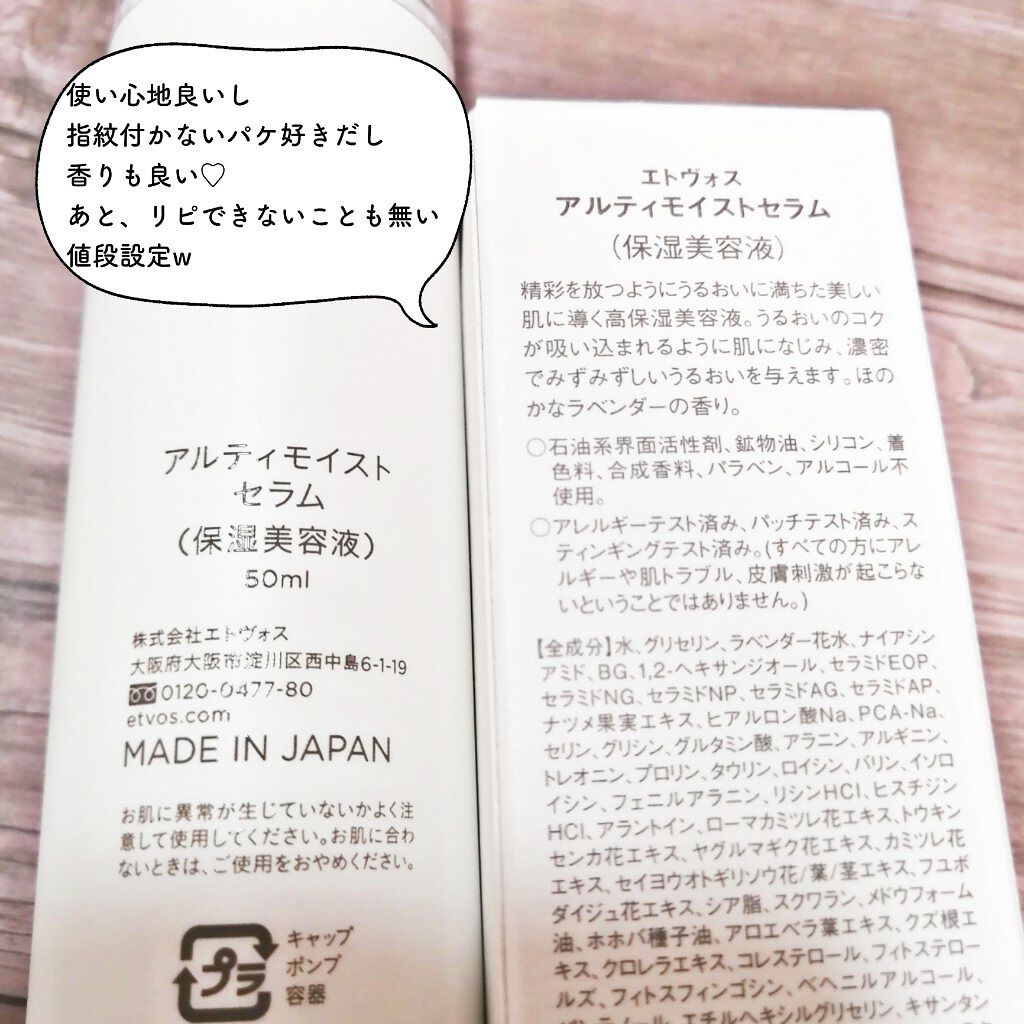 使い心地良いし
指紋付かないパケ好きだし
香りも良い♡
あと、リピできないことも無い
値段設定w
アルティモイスト
セラム
(保湿美容液)
50ml
株式会社エトヴォス
大阪府大阪市淀川区西中島6-1-19
0120-0477-80
etvos.com
MADE IN JAPAN
お肌に異常が生じていないかよく注
意して使用してください。お肌に合わ
ないときは、ご使用をおやめください。
プラ
キャップ
ポンプ
容器
エトヴォス
アルティモイストセラム
(保湿美容液)
精彩を放つようにうるおいに満ちた美しい
肌に導く高保湿美容液。うるおいのコク
が吸い込まれるように肌になじみ、濃密
でみずみずしいうるおいを与えます。ほの
かなラベンダーの香り。
○石油系界面活性剤、鉱物油、シリコン、着
色料、合成香料、パラベン、アルコール不
使用。
○アレルギーテスト済み、パッチテスト済み、ス
ティンギングテスト済み。(すべての方にアレ
ルギーや肌トラブル、皮膚刺激が起こらな
いということではありません。)
【全成分】水、グリセリン、ラベンダー花水、ナイアシン
アミド、BG、1,2-ヘキサンジオール、セラミドEOP、
セラミドNG、セラミドNP、セラミドAG、セラミドAP、
ナツメ果実エキス、ヒアルロン酸Na、PCA-Na、
セリン、グリシン、グルタミン酸、アラニン、アルギニン、
トレオニン、プロリン、タウリン、ロイシン、バリン、イソロ
イシン、フェニルアラニン、リシンHCl、ヒスチジン
HCl、アラントイン、ローマカミツレ花エキス、トウキン
センカ花エキス、ヤグルマギク花エキス、カミツレ花
エキス、セイヨウオトギリソウ花/葉/茎エキス、フユボ
ダイジュ花エキス、シア脂、スクワラン、メドウフォーム
油、ホホバ種子油、アロエベラ葉エキス、クズ根エ
キス、クロレラエキス、コレステロール、フィトステロー
ルズ、フィトスフィンゴシン、ベヘニルアルコール、
エチルヘキシルグリセリン、キサンタン